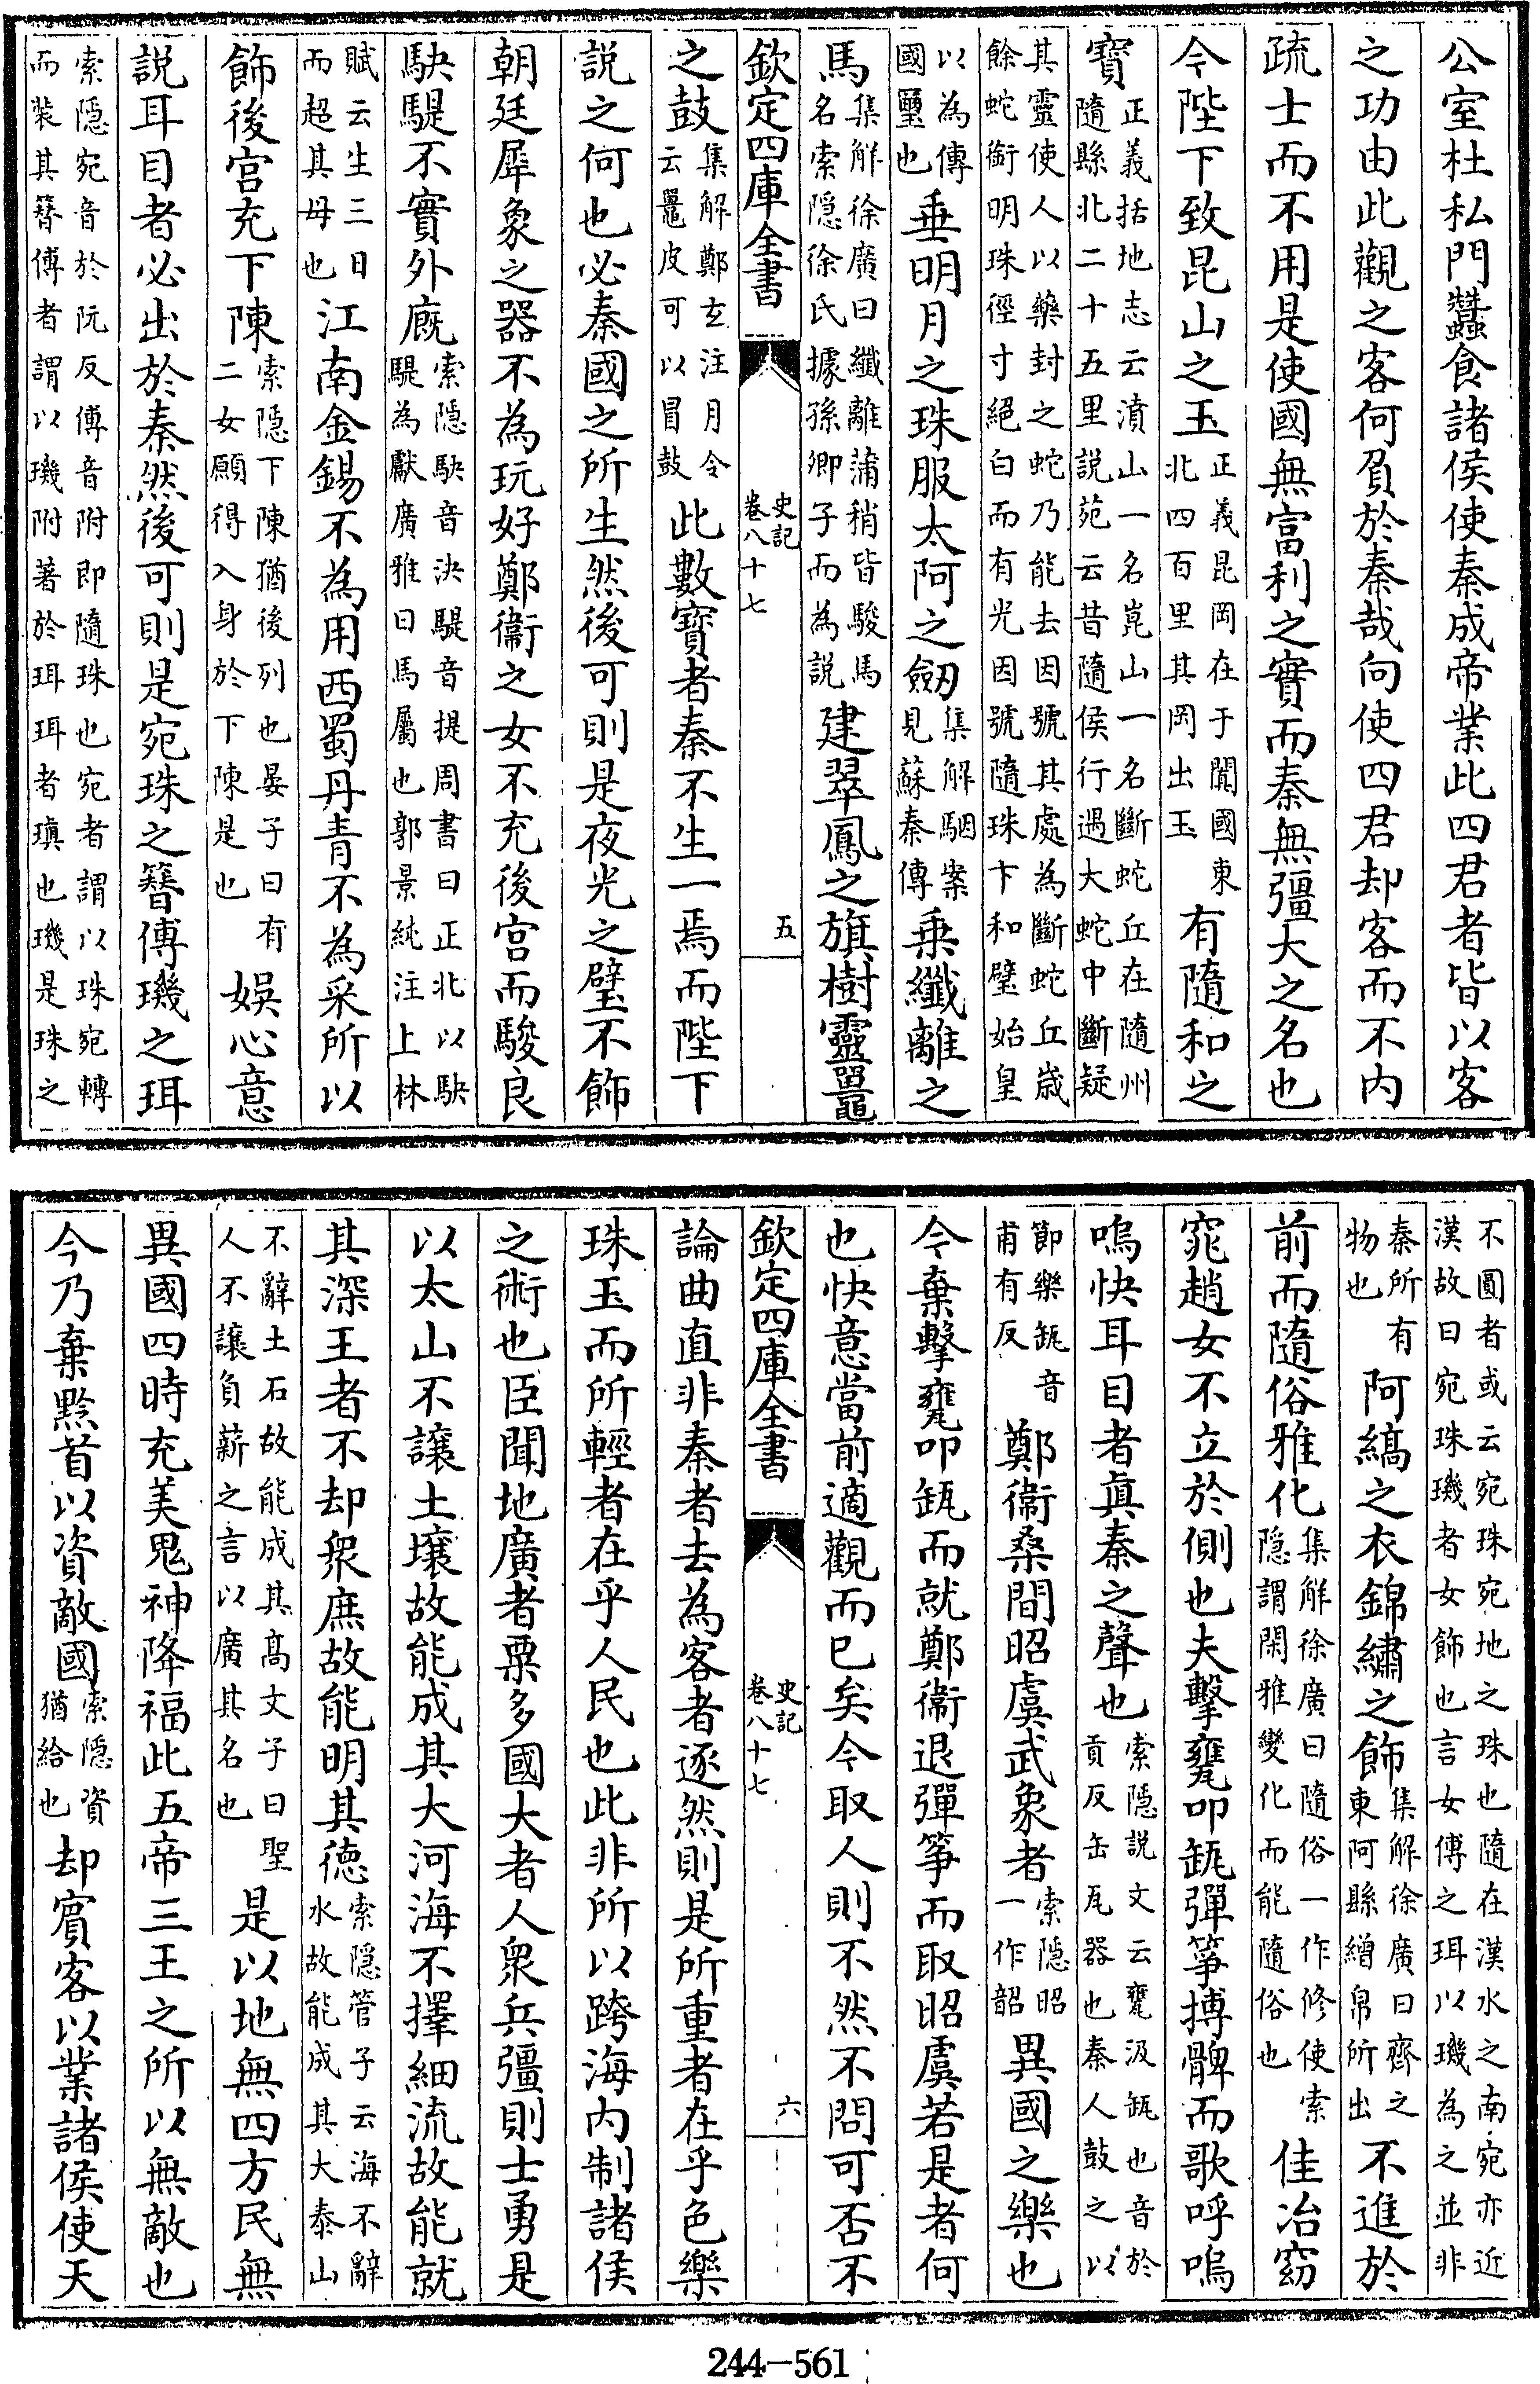 公室杜私門蠶食諸侯使秦成帝業此四君者皆以客
之功由此觀之客何負於秦哉向使四君却客而不内
疏士而不用是使國無富利之實而秦無彊大之名也
今陛下致昆山之玉正義昆岡在于闐國東北四百里其岡出玉有隨和之
寶正義括地志云濆山一名崑山一名斷蛇丘在隨州隨縣北二十五里説苑云昔隨侯行遇大蛇中斷疑
其靈使人以藥封之蛇乃能去因號其處為斷蛇丘歳餘蛇銜明珠徑寸絕白而有光因號隨珠卞和璧始皇
以為傳國璽也垂明月之珠服太阿之劒集解駰案見蘇秦傳乗纖離之
馬集解徐廣曰纖離蒲稍皆駿馬名索隠徐氏據孫卿子而為説建翠鳳之旗樹靈鼉
欽定四庫全書 史記卷八十七 五
之鼓集解鄭玄注月令云鼉皮可以冒鼓此數寳者秦不生一焉而陛下
説之何也必秦國之所生然後可則是夜光之璧不飾
朝廷犀象之器不為玩好鄭衞之女不充後宫而駿良
駃騠不實外廐索隠駃音決騠音提周書曰正北以駃騠為獻廣雅曰馬屬也郭景純注上林
賦云生三日而超其母也江南金錫不為用西蜀丹青不為采所以
飾後宫充下陳索隠下陳猶後列也晏子曰有二女願得入身於下陳是也娛心意
説耳目者必出於秦然後可則是宛珠之簪傅璣之珥
索隠宛音於阮反傅音附即隨珠也宛者謂以珠宛轉而裝其簪傅者謂以璣附著於珥珥者瑱也璣是珠之
不圓者或云宛珠宛地之珠也隨在漢水之南宛亦近漢故曰宛珠璣者女飾也言女傅之珥以璣為之並非
秦所有物也阿縞之衣錦繡之飾集解徐廣曰齊之東阿縣繒帛所出不進於
前而隨俗雅化集解徐廣曰隨俗一作修使索隠謂閑雅變化而能隨俗也佳冶窈
窕趙女不立於側也夫擊甕叩缻彈箏搏髀而歌呼嗚
嗚快耳目者真秦之聲也索隠説文云甕汲缻也音於貢反缶瓦器也秦人鼓之以
節樂缻音甫有反鄭衞桑間昭虞武象者索隠昭一作韶異國之樂也
今棄擊甕叩缻而就鄭衞退彈箏而取昭虞若是者何
也快意當前適觀而已矣今取人則不然不問可否不
欽定四庫全書 史記卷八十七 六
論曲直非秦者去為客者逐然則是所重者在乎色樂
珠玉而所輕者在乎人民也此非所以跨海内制諸侯
之術也臣聞地廣者粟多國大者人衆兵彊則士勇是
以太山不讓土壤故能成其大河海不擇細流故能就
其深王者不却衆庶故能明其德索隠管子云海不辭水故能成其大泰山
不辭土石故能成其髙文子曰聖人不讓負薪之言以廣其名也是以地無四方民無
異國四時充美鬼神降福此五帝三王之所以無敵也
今乃棄黔首以資敵國索隠資猶給也却賓客以業諸侯使天
244-561